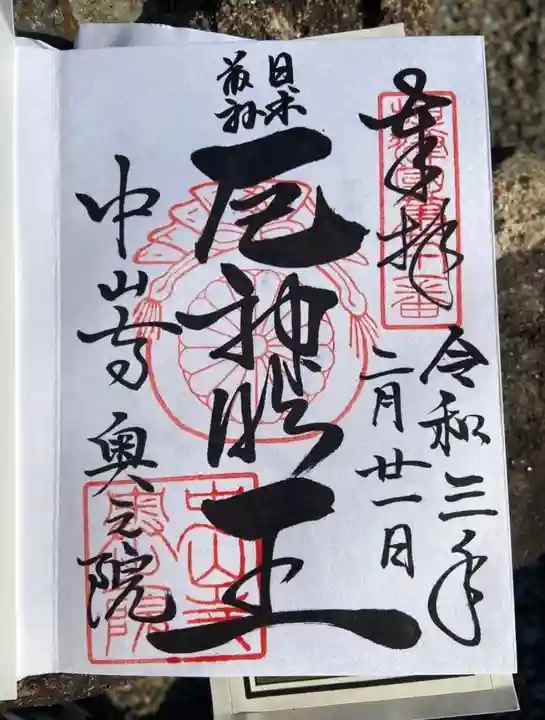 奉拝
令和三年
二月廿一日
日本最初
厄神明王
中山寺
奥之院